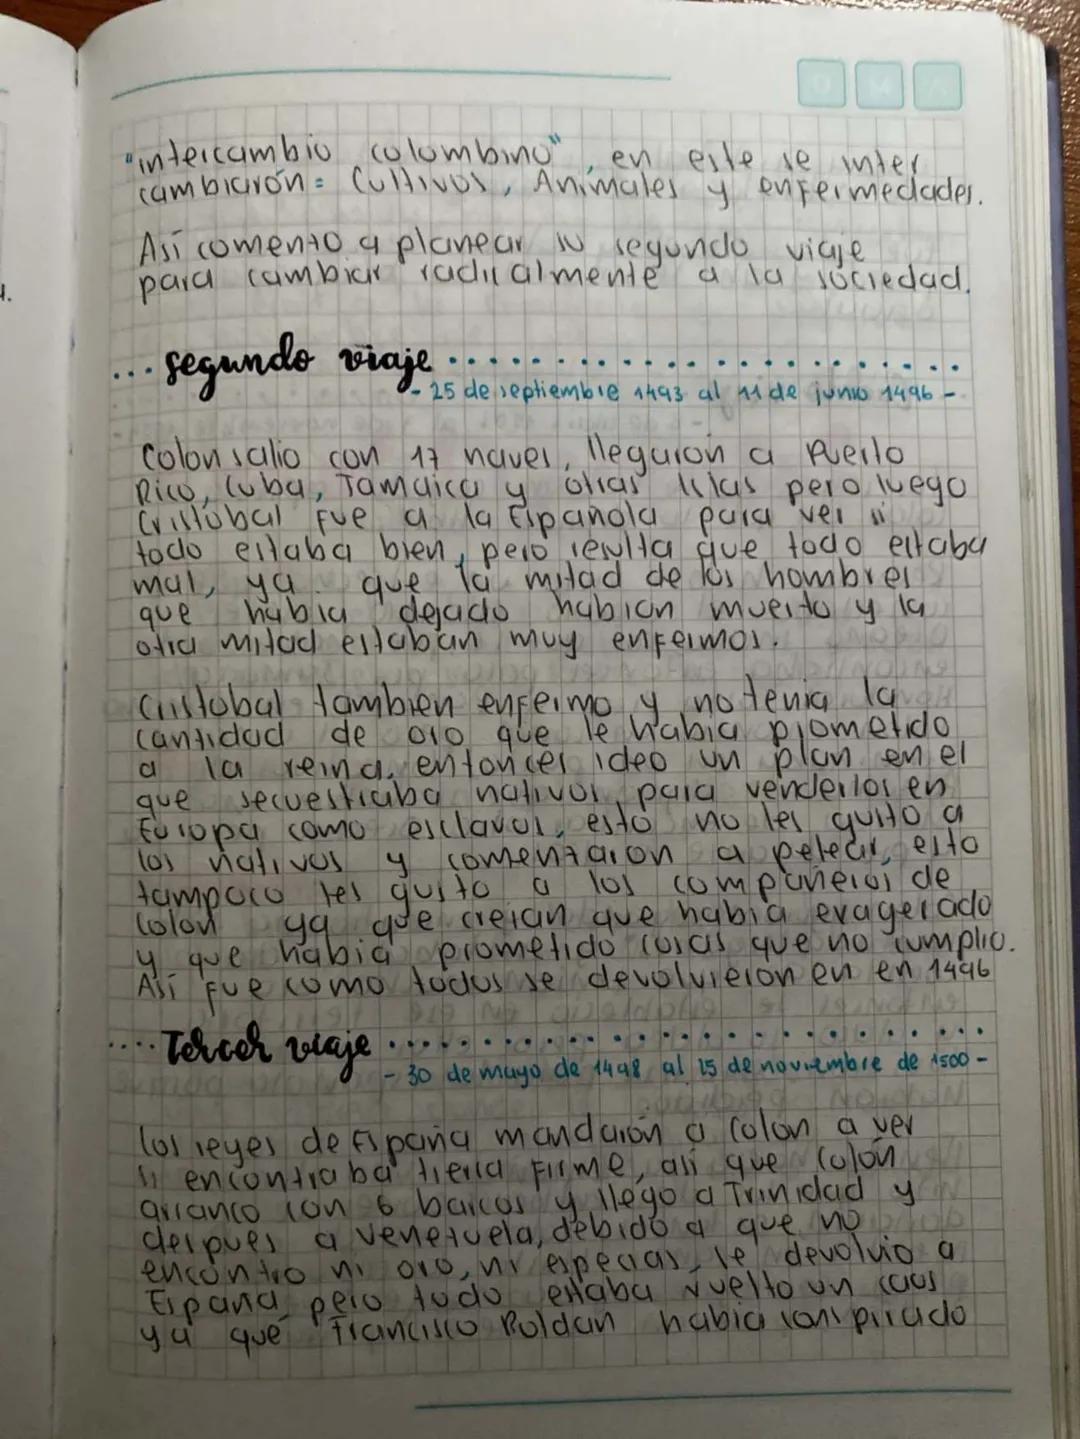 "intercambio colombino", en este se inter
cambiarón = Cultivos, Animales y enfermedades.
Así comenzo a planear su segundo viaje
para cambiar radicalmente a la sociedad.
... segundo viaje
- 25 de septiembre 1493 al 11 de junio 1496 -
Colon salio con 17 naves, llegaron a Puerto
Rico, Cuba, Jamaica y otras islas pero luego
Cristobal fue a la Española para ver si
todo estaba bien, pero resulta que todo estaba
mal, ya que la mitad de los hombres
que habia dejado habian muerto y la
otra mitad estaban muy enfermos.
Cristobal tambien enfermo y no tenia la
cantidad de oro que le habia prometido
a la reina, entonces ideo un plan en el
que secuestraba nativos para venderlos en
Europa como esclavos, esto no les gusto a
los nativos y comenzaron a pelear, esto
tampoco les gusto a los compañeros de
Colon ya que creian que habia exagerado
y que habia prometido cosas que no cumplio.
Así fue como todos se devolvieron en en 1496
.... Tercer viaje
- 30 de mayo de 1498 al 25 de noviembre de 1500 -
los reyes de España mandarón a Colon a ver
si encontraba tierra firme, asi que Colón
arranco con 6 barcos y llego a Trinidad y
despues a Venezuela, debido a que no
encontro ni oro, ni especias, se devolvio a
España pero todo estaba vuelto un caos
ya que Francisco Roldan habia conspirado